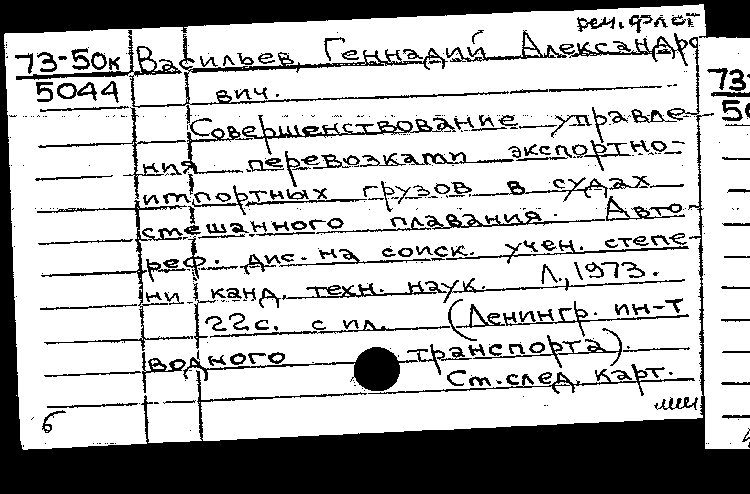 реч. флот
73-50к Васильев, Геннадий Александро
5044 вич.
Совершенствование управле-
ния перевозками экспортно-
импортных грузов в судах
смешанного плавания. Авто-
реф. дис. на соиск. учен. степе-
ни канд. техн. наук. Л., 1973.
22с. с ил. (Ленингр. ин-т
водного транспорта).
См. след. карт.
б
73-
50